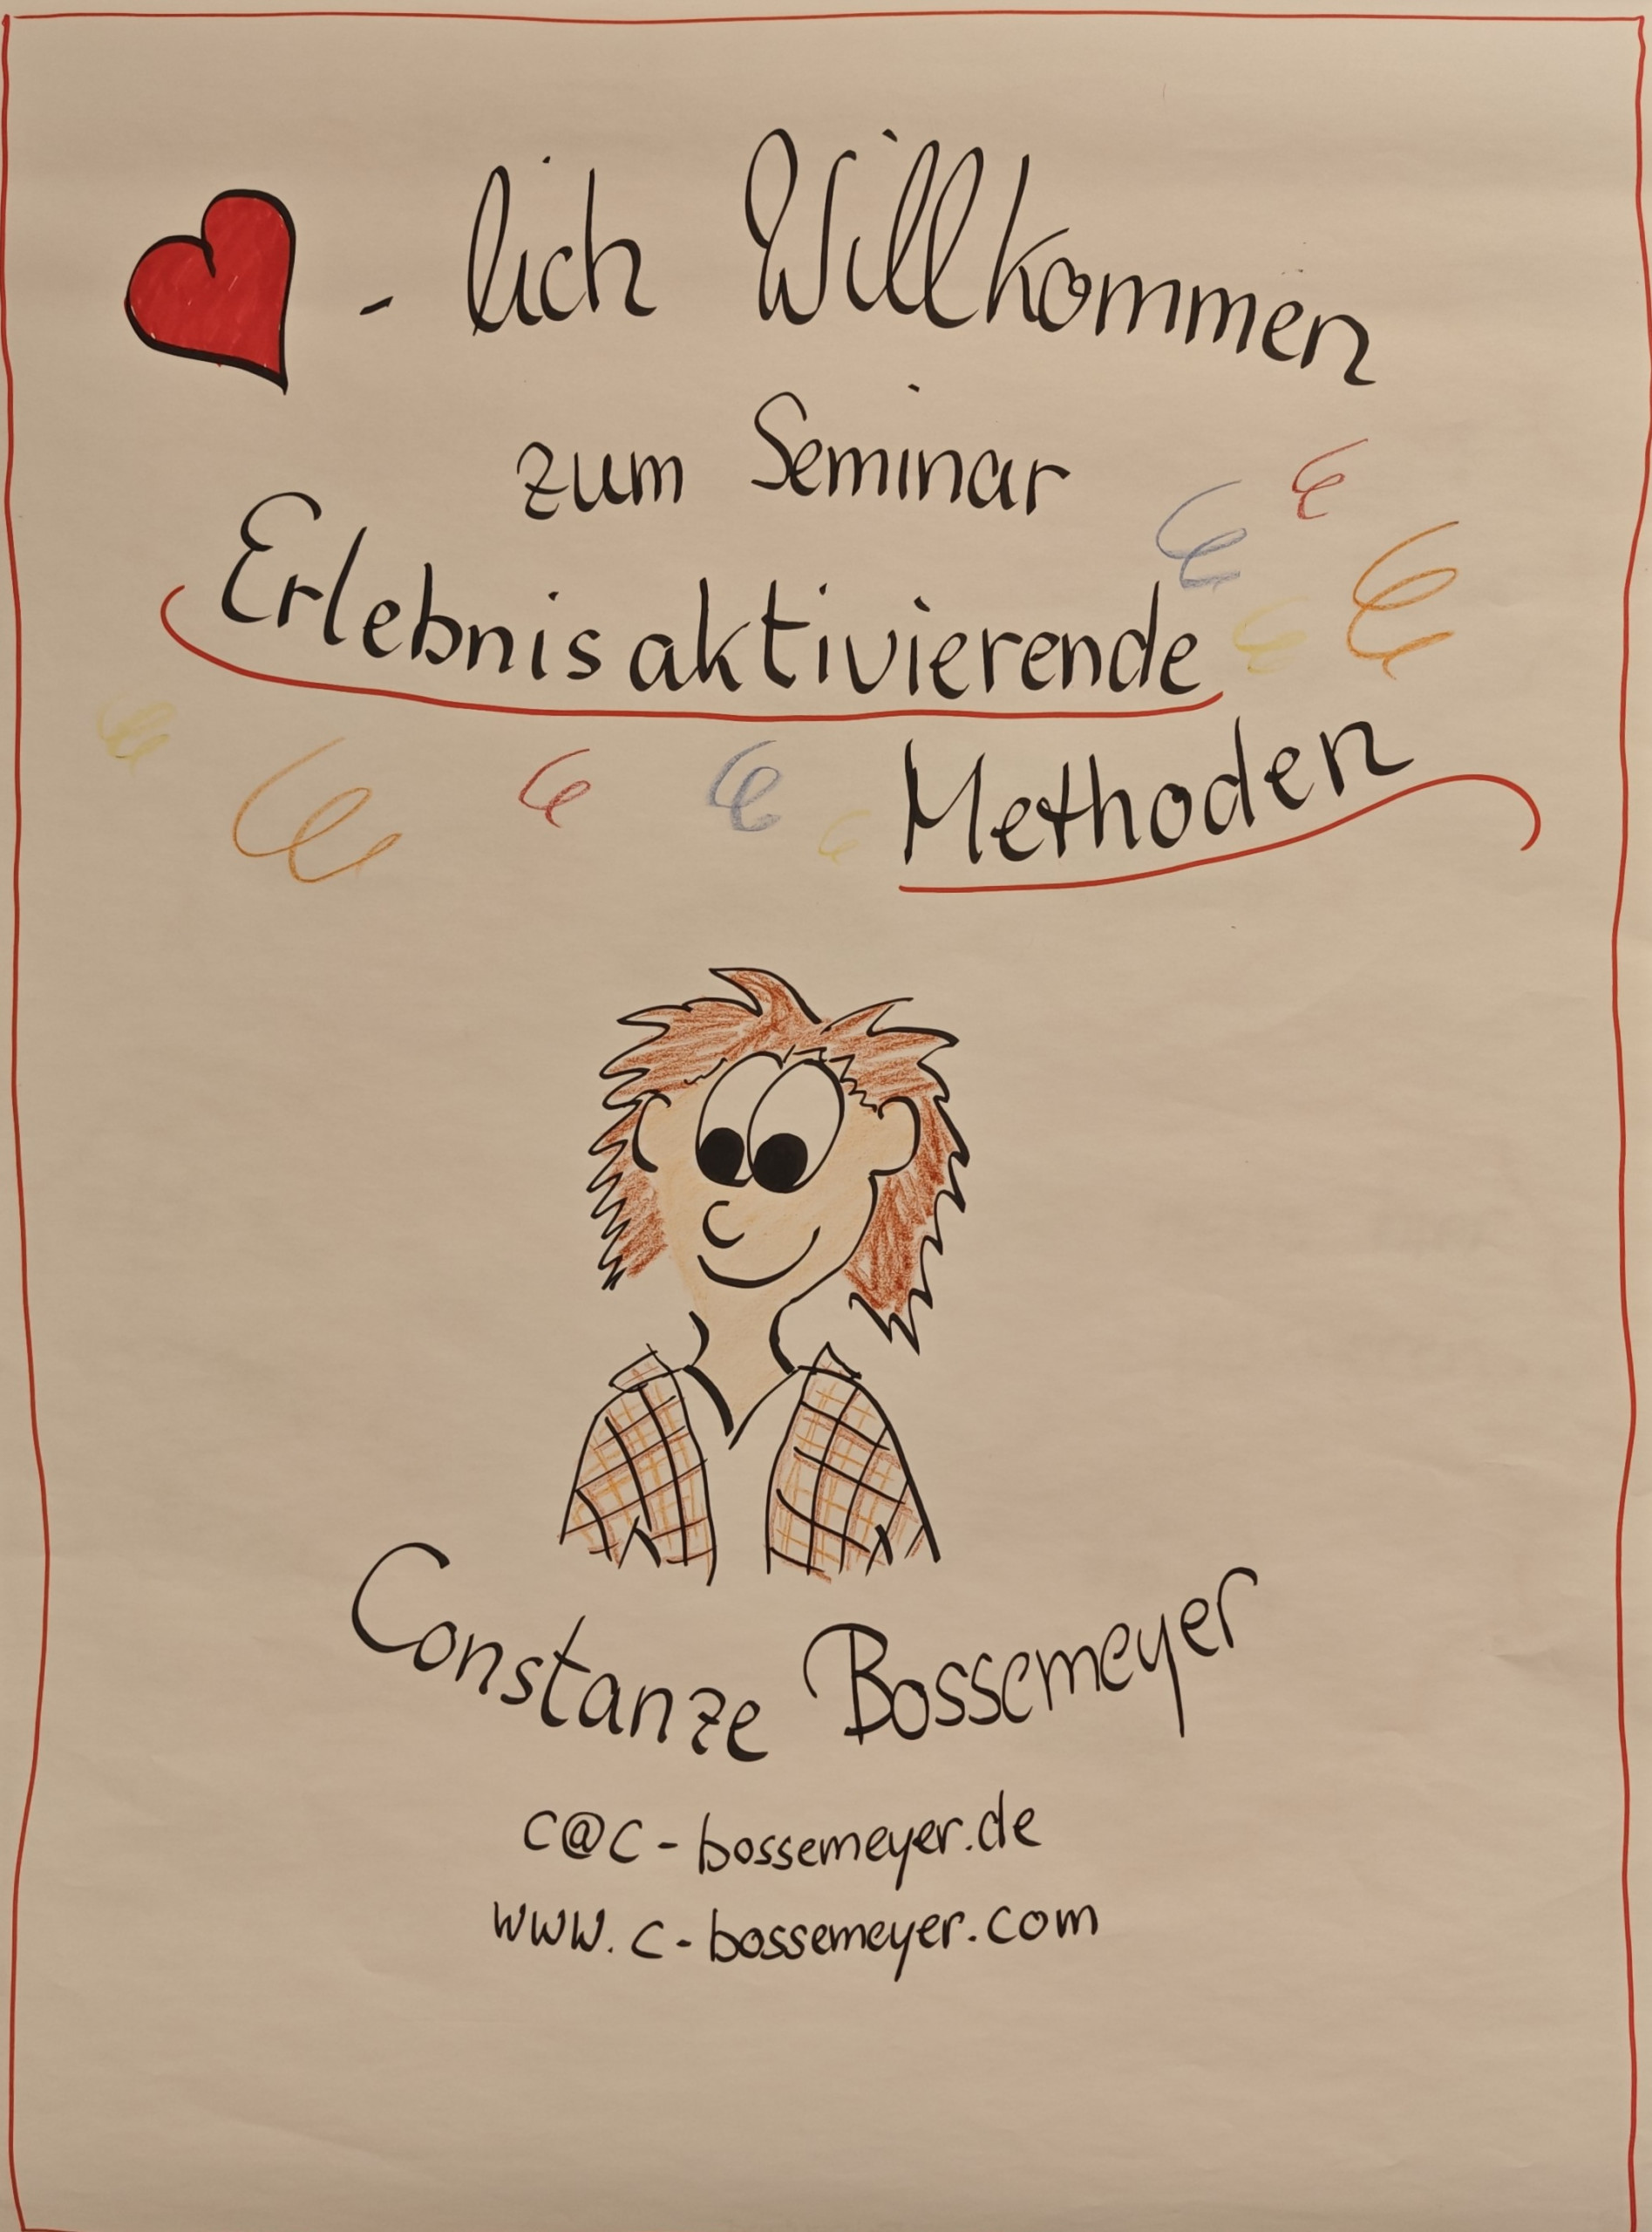 - lich Willkommen
zum Seminar
Erlebnisaktivierende
Methoden
Constanze Bossemeyer
c@c-bossemeyer.de
www.c-bossemeyer.com